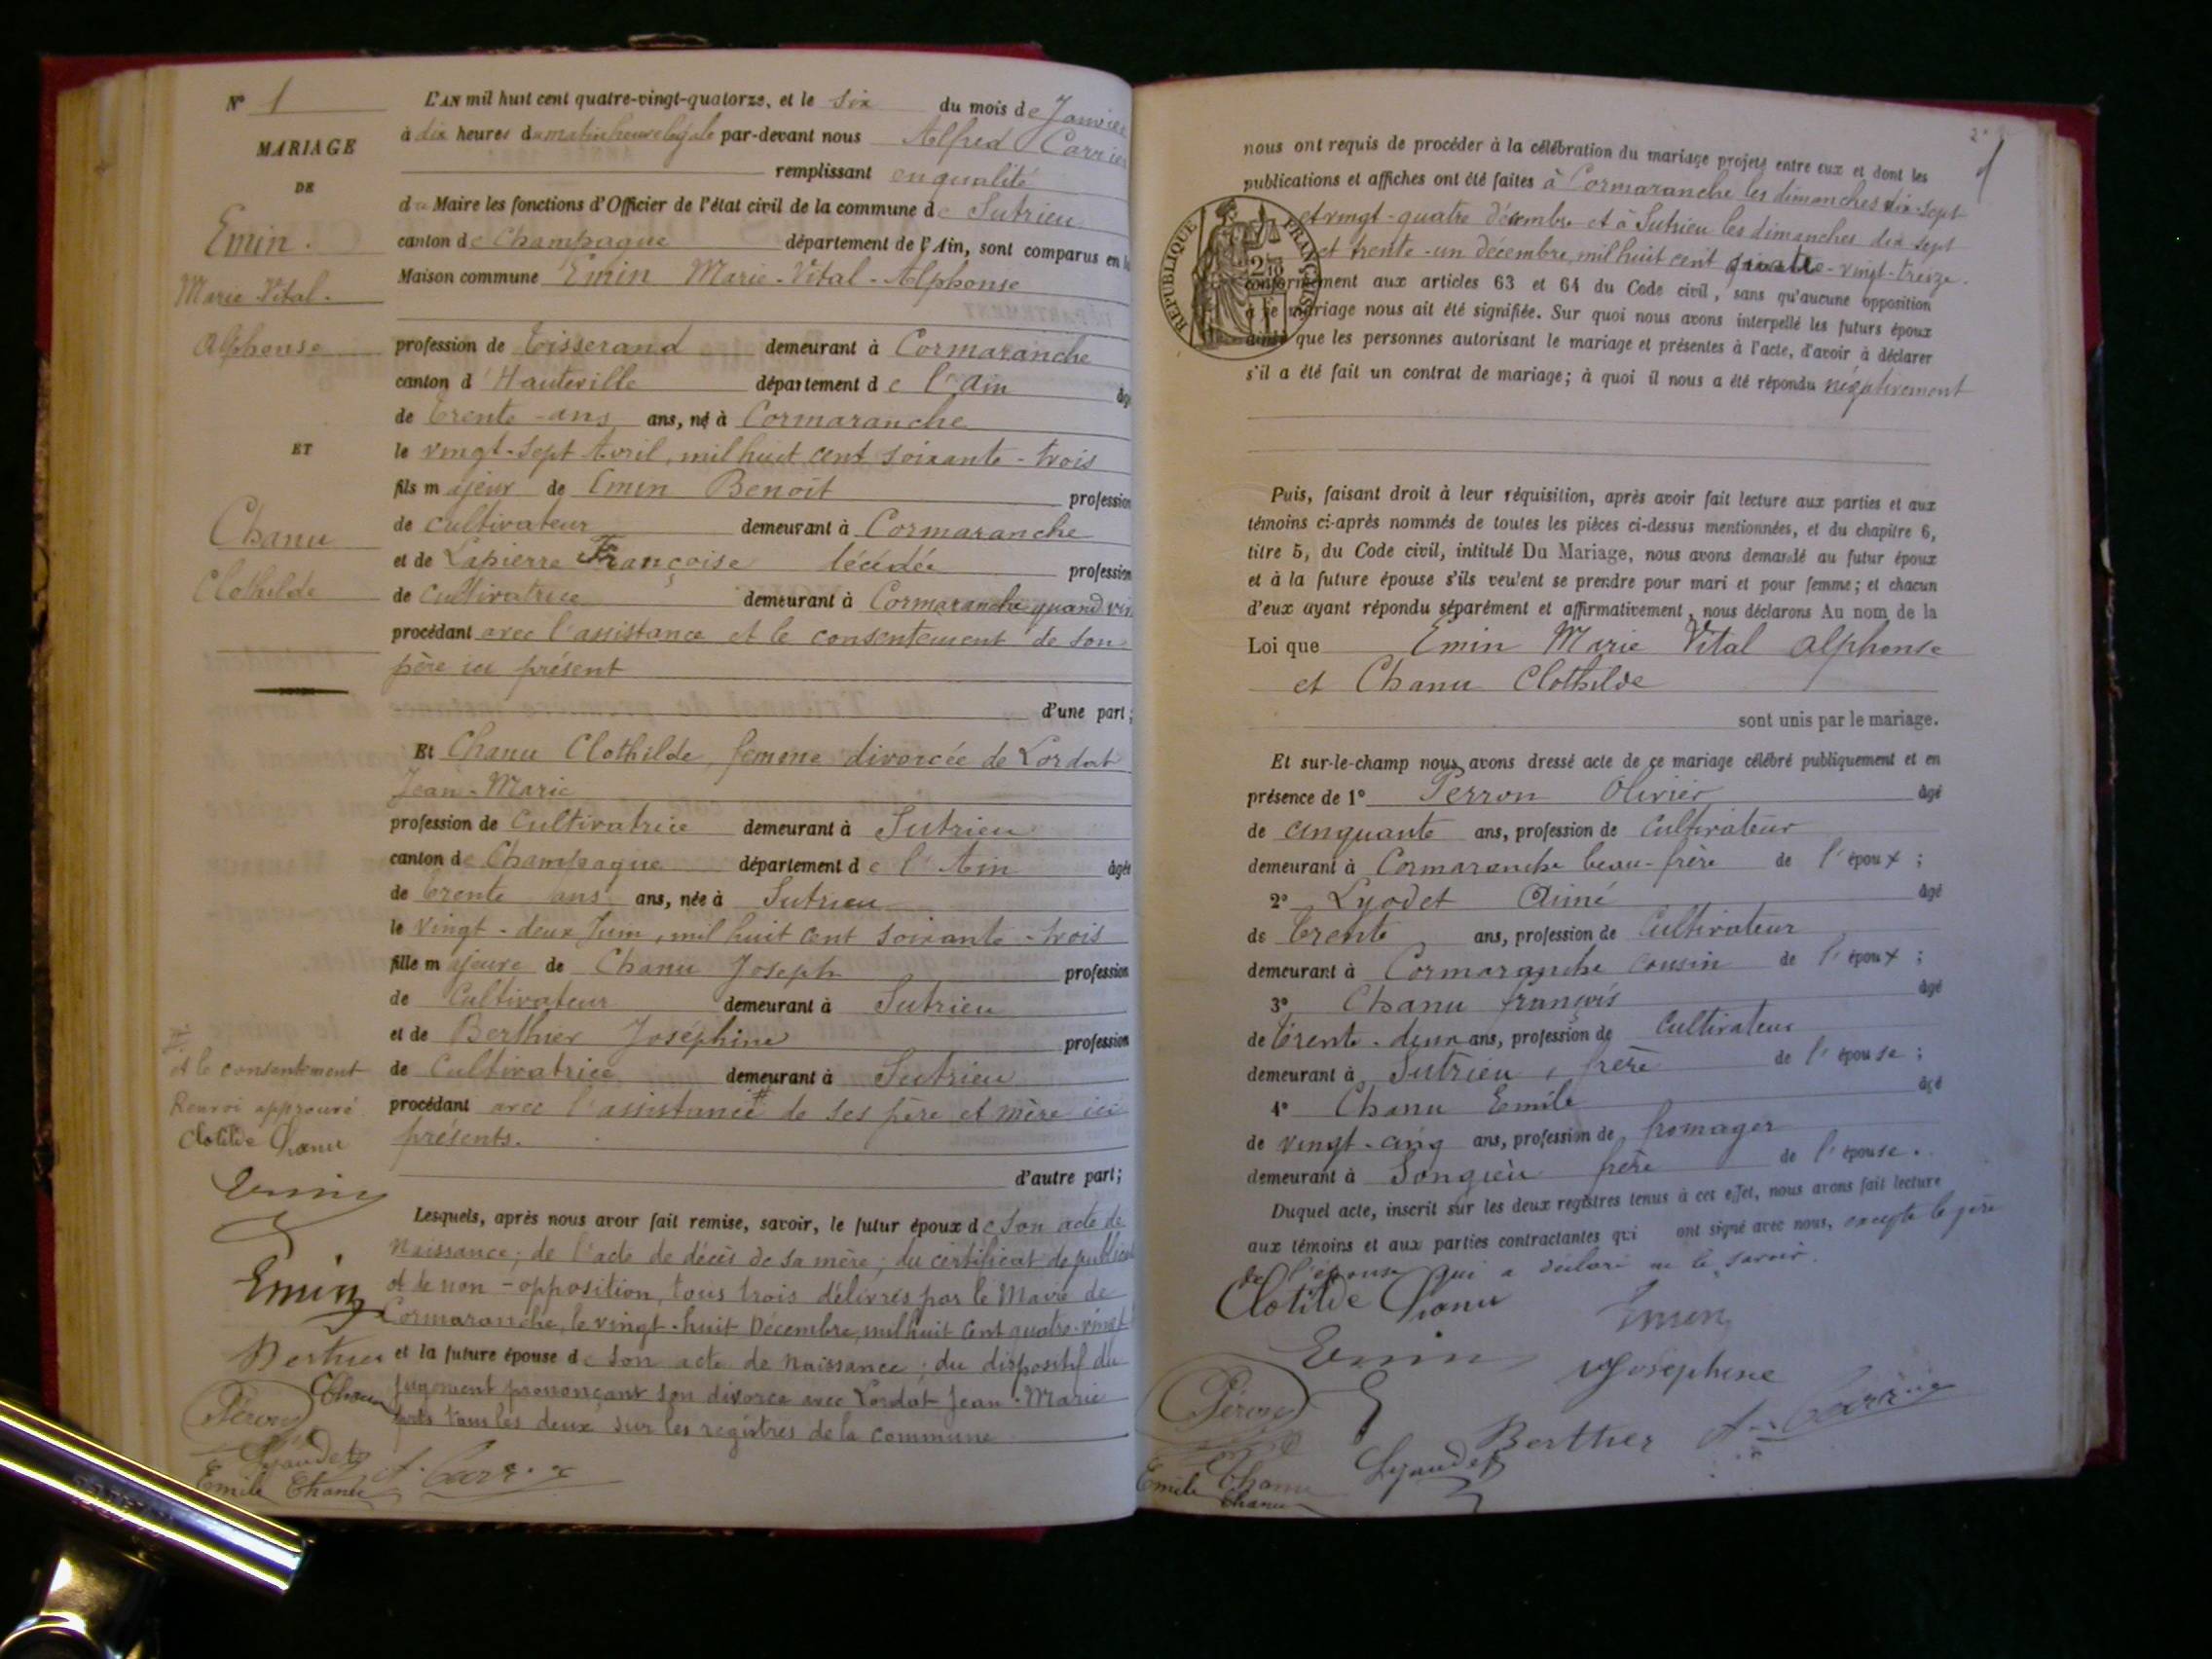 N° 1
MARIAGE
DE
Emin.
Marie Vital.
Alphonse
ET
Chanu
Clothilde
et le consentement
Renvoi approuvé
Clotilde Chanu
Emin
Emin
Berthier
Chanu
Péron
Lyaudet
Emile Chanu
L'AN mil huit cent quatre-vingt-quatorze, et le six du mois de Janvier
à dix heures du matin heure légale par-devant nous Alfred Carrier
remplissant en qualité
du Maire les fonctions d'Officier de l'état civil de la commune de Sutrieu
canton de Champagne département de l'Ain, sont comparus en la
Maison commune Emin Marie-Vital-Alphonse
profession de Tisserand demeurant à Cormaranche
canton d'Hauteville département de l'Ain âgé
de trente-ans ans, né à Cormaranche
le vingt-sept Avril, mil huit cent soixante-trois
fils majeur de Emin Benoit profession
de cultivateur demeurant à Cormaranche
et de Lapierre Françoise décédée profession
de Cultivatrice demeurant à Cormaranche quand
procédant avec l'assistance et le consentement de son
père ici présent
d'une part;
Et Chanu Clothilde, femme divorcée de Lordat
Jean-Marie
profession de Cultivatrice demeurant à Sutrieu
canton de Champagne département de l'Ain âgée
de trente ans ans, née à Sutrieu
le vingt-deux Juin, mil huit cent soixante-trois
fille majeure de Chanu Joseph profession
de Cultivateur demeurant à Sutrieu
et de Berthier Joséphine profession
de Cultivatrice demeurant à Sutrieu
procédant avec l'assistance # de ses père et mère ici
présents.
d'autre part;
Lesquels, après nous avoir fait remise, savoir, le futur époux de son acte de
naissance; de l'acte de décès de sa mère; du certificat de
et de non-opposition, tous trois délivrés par le Maire de
Cormaranche, le vingt-huit Décembre, mil huit cent quatre-vingt
et la future épouse de son acte de naissance; du dispositif du
jugement prononçant son divorce avec Lordat Jean-Marie
tous les deux sur les registres de la commune
A. Carrier
nous ont requis de procéder à la célébration du mariage projeté entre eux et dont les
publications et affiches ont été faites à Cormaranche les dimanches dix-sept
et vingt-quatre décembre et à Sutrieu les dimanches dix sept
et trente-un décembre, mil huit cent quatre-vingt-treize.
RÉPUBLIQUE FRANÇAISE
conformément aux articles 63 et 64 du Code civil, sans qu'aucune opposition
à ce mariage nous ait été signifiée. Sur quoi nous avons interpellé les futurs époux
ainsi que les personnes autorisant le mariage et présentes à l'acte, d'avoir à déclarer
s'il a été fait un contrat de mariage; à quoi il nous a été répondu négativement
Puis, faisant droit à leur réquisition, après avoir fait lecture aux parties et aux
témoins ci-après nommés de toutes les pièces ci-dessus mentionnées, et du chapitre 6,
titre 5, du Code civil, intitulé Du Mariage, nous avons demandé au futur époux
et à la future épouse s'ils veulent se prendre pour mari et pour femme; et chacun
d'eux ayant répondu séparément et affirmativement, nous déclarons Au nom de la
Loi que Emin Marie Vital Alphonse
et Chanu Clothilde
sont unis par le mariage.
Et sur-le-champ nous avons dressé acte de ce mariage célébré publiquement et en
présence de 1° Perron Olivier âgé
de cinquante ans, profession de Cultivateur
demeurant à Cormaranche beau-frère de l'époux;
2° Lyodet Aimé âgé
de trente ans, profession de Cultivateur
demeurant à Cormaranche cousin de l'époux;
3° Chanu françois âgé
de trente-deux ans, profession de Cultivateur
demeurant à Sutrieu, frère de l'épouse;
4° Chanu Emile âgé
de vingt-cinq ans, profession de fromager
demeurant à Songieu frère de l'épouse.
Duquel acte, inscrit sur les deux registres tenus à cet effet, nous avons fait lecture
aux témoins et aux parties contractantes qui ont signé avec nous, excepté le père
de l'épouse qui a déclaré ne le savoir.
Clotilde Chanu
Emin
Emin
Joséphine
Péron
Berthier
A. Carrier
Lyaudet
Emile Chanu
Chanu